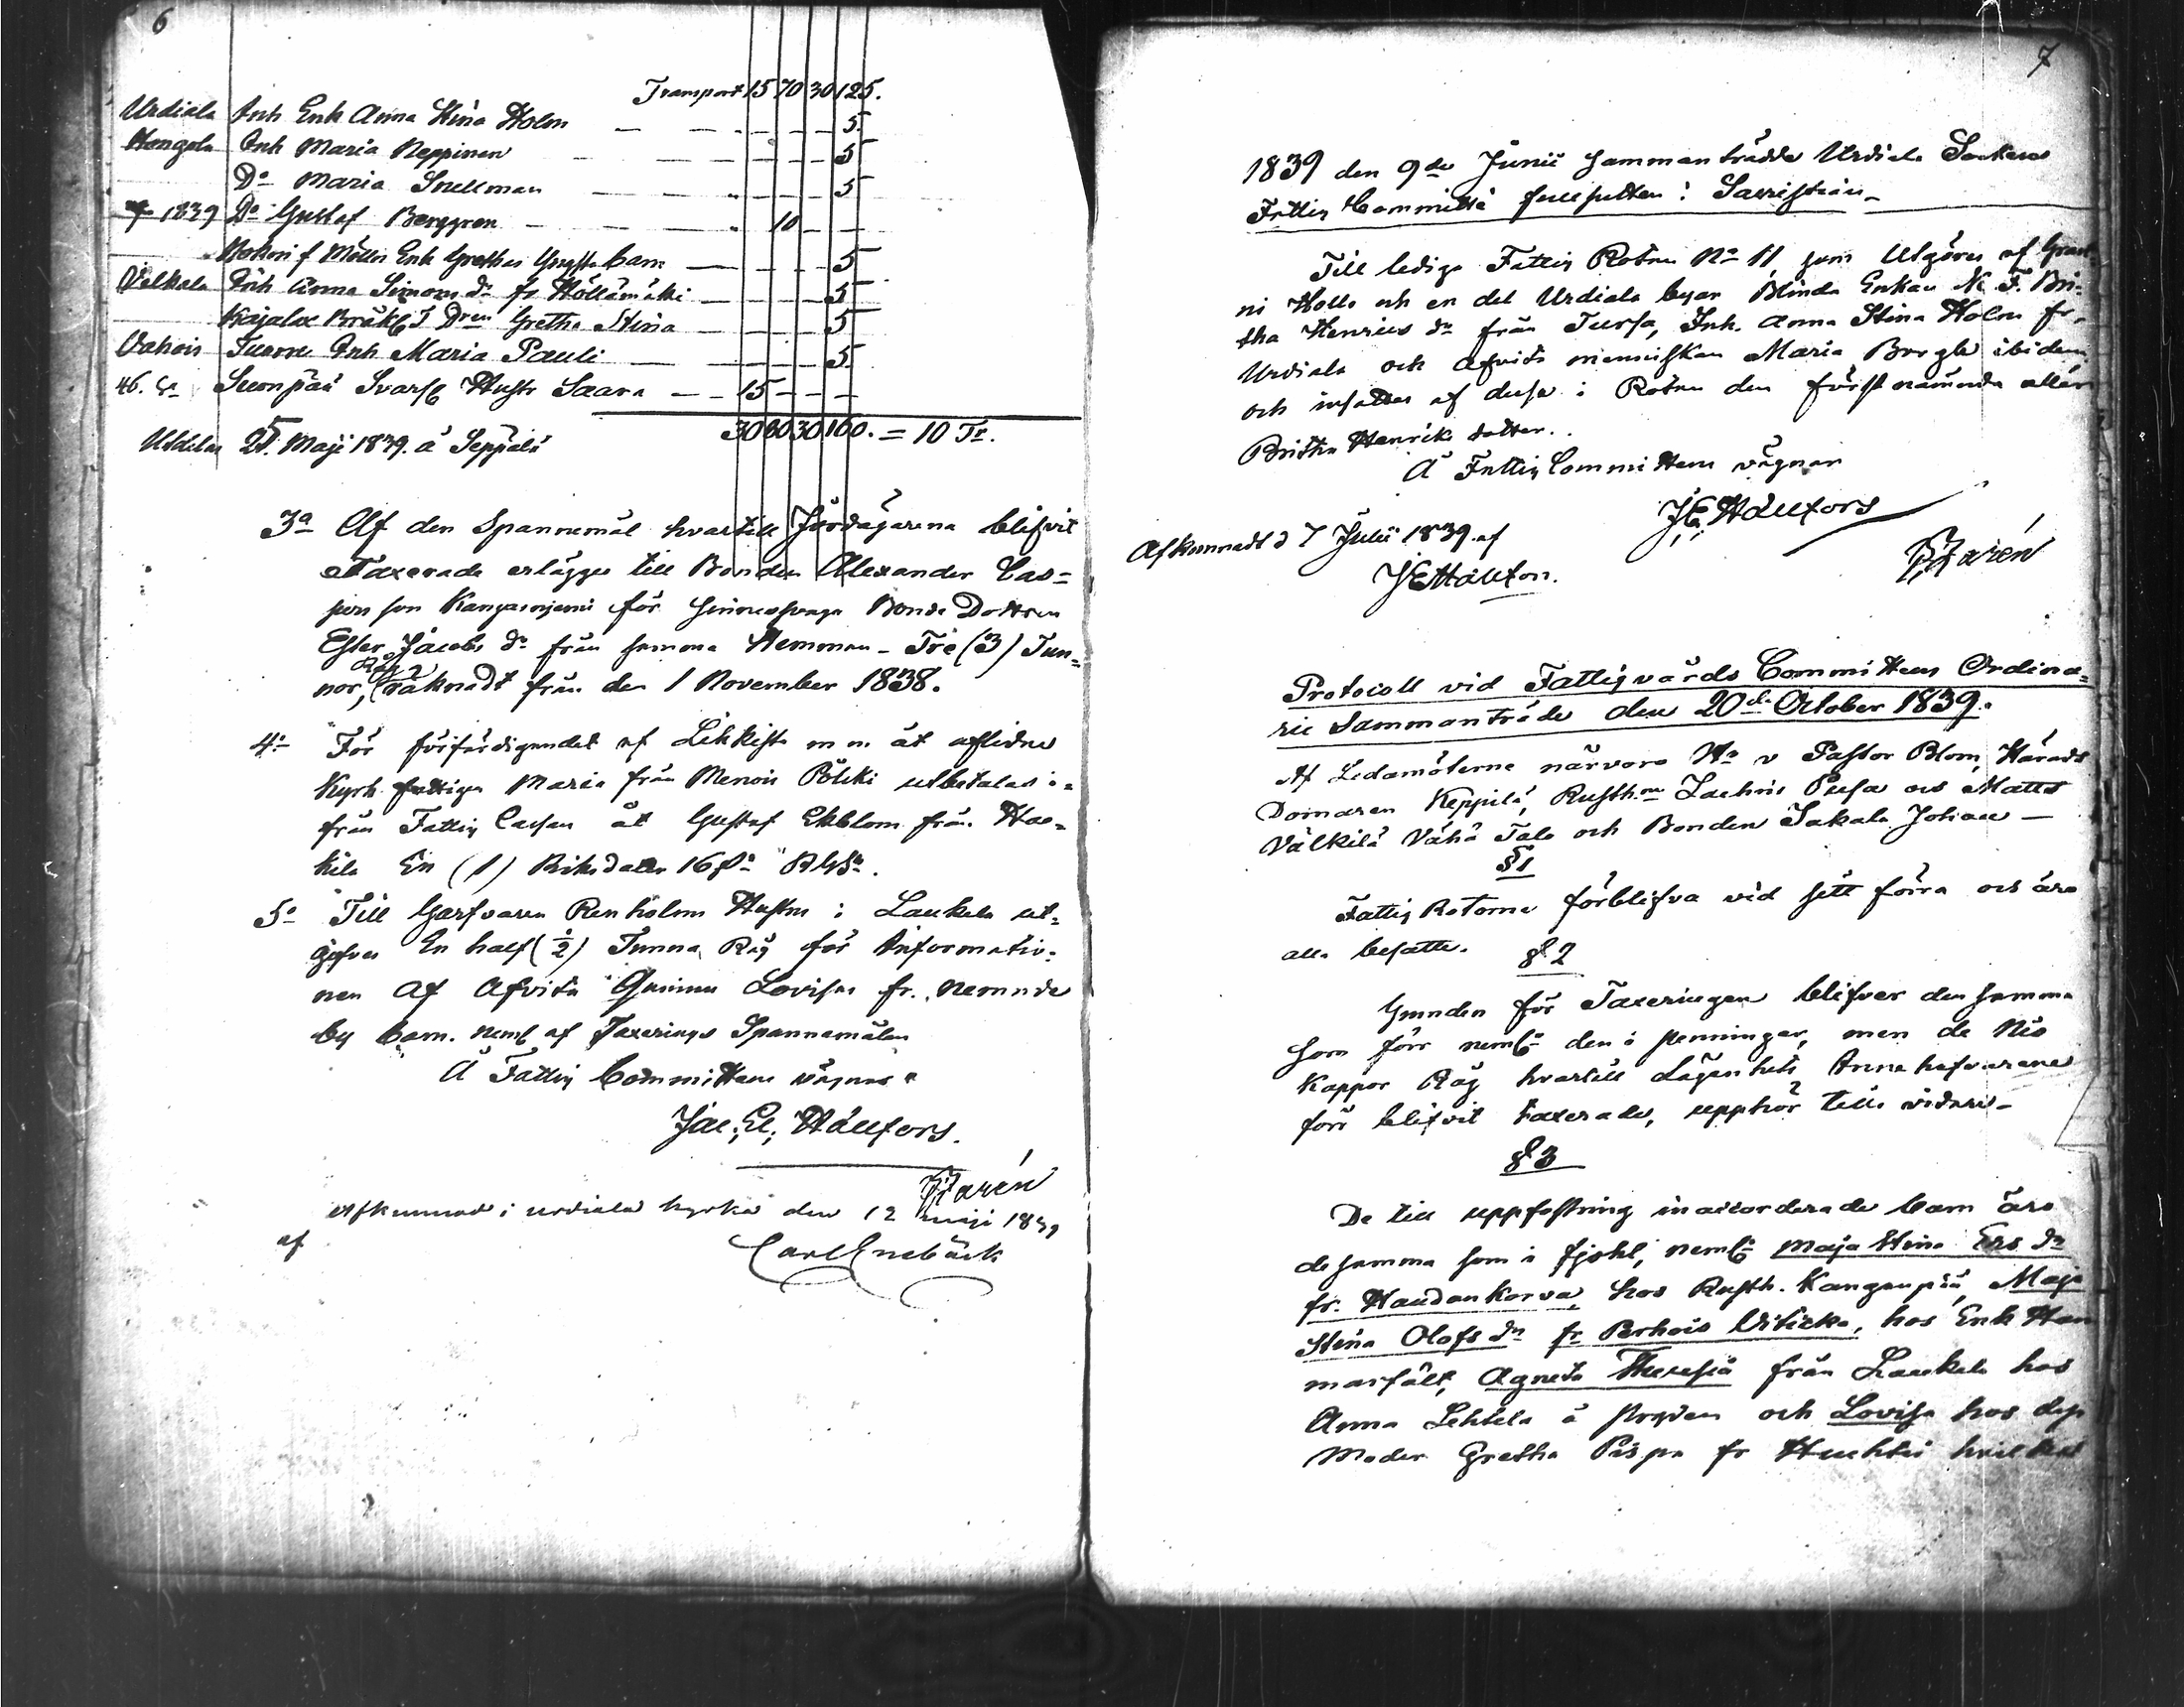 6
Transport 15 70 30 125.
Urdiala Inh Enk Anna Stina Holm — — — — — 5.
Hongola Inh Maria Reppinen — — — — — 5
Do Maria Snellman — — — — — 5
1839 Do Gustaf Berggren — — — 10 — —
f Möller Enk Grethas barn — — — — 5
Välkkilä Inh Anna Simons dr fr Höllämäki — — — — 5
Dren Gretha Stina — — — — 5
Vahois Inh Maria Pauli — — — — 5.
46. Suonpää Hustr Saara — — 15 — — —
30 80 30 160. = 10 Tr.
Utdelas 25. Maji 1839. å Seppälä
3o Af den Spannemål hvartill Jordägarena blifvit
Taxerade erlägges till Bonden Alexander Cas=
pers son Kangasniemi för sinnessvaga Bonde Dottren
Ester Jacobs dr från samma Hemman – Tre (3) Tun=
Råg
nor, räknadt från den 1 November 1838.
4o För förfärdigandet af Likkista m m åt aflidne
Kyrk fattiga Maria från Menois Pölkki utbetalas i=
från Fattig Cassan åt Gustaf Ekblom från Hac=
kila En (1) Riksdaler 16
5o Till Garfvaren Renholms Hustru i Laukela ut=
gifves En half (½) Tunna Råg för Informatio=
nen af Afvita Lovisas fr. nemnde
by barn. neml af Taxerings Spannemålen
Å Fattig Committéens vägnar
Jac. El. Hällfors.
Zarén
Afkunnad i Urdiala kyrka den 12 maji 1839
af
Carl Enebäck
7
1839 den 9de Junii sammanträdde Urdiala Sockens
Fattig Committé i Sacristian –
Till lediga Fattig Roten No 11 som Utgöres af
ni Hollo och en del Urdiala byar Blinda Enkan Bri=
tha Henrics dr från Tursa, Inh. Anna Stina Holm fr.
Urdiala och Afvita menniskan Maria Bergle ibidem
och insattes af dessa i Roten den förstnämnda eller
Britha Henriks dotter.
Å Fattig Committéens vägnar
J.E. Hällfors
Zarén
Afkunnadt d 7 Julii 1839 af
JE Hällfors.
Protocoll vid Fattigvårds Committéens Ordina=
rie Sammanträde den 20de October 1839.
Af Ledamöterne närvoro Hr v Pastor Blom, Härads
Domaren Keppilä, Rusth. Pusa och Matts
Välkilä Vähä Talo och Bonden Sakala Johan —
§ 1
Fattig Rotorne förblifva vid sitt förra och äro
alla besatte.
§ 2
Grunden för Taxeringen blifver den samma
som förr neml den i penningar, men de Nio
Kappor Råg hvartill Lägenhets Innehafvarene
förr blifvit taxerade, upphör tills vidare –
§ 3
De till uppfostring inaccorderade barn äro
desamma som i fjohl, neml Maja Stina Ers dr
fr. Haudankorva, hos Rusth. Kangenpää, Maja
Stina Olofs dr fr Perhois Uitikka, hos Enk Ham
marfält, Agneta Theresia från Laukela hos
Anna Lehtela och Lovisa hos dess
Moder Gretha Pispa fr Huhtis hvilka